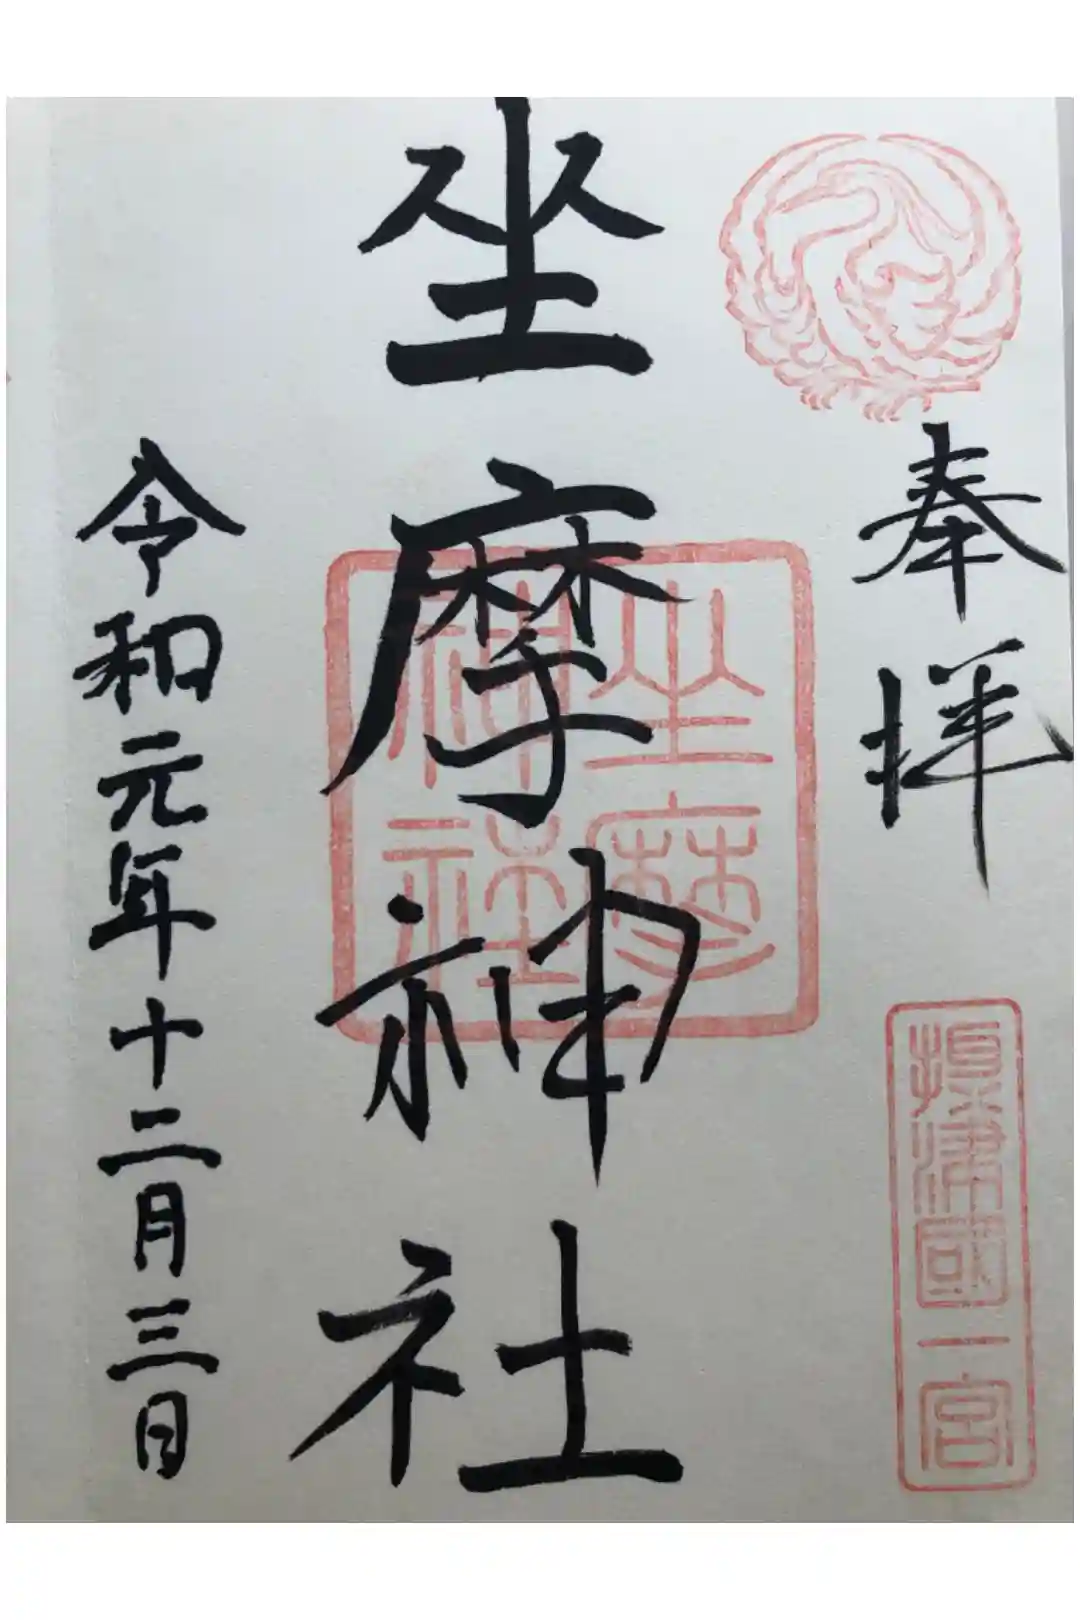 奉拝
攝津國一宮
坐摩神社
坐摩神社
令和元年十二月三日